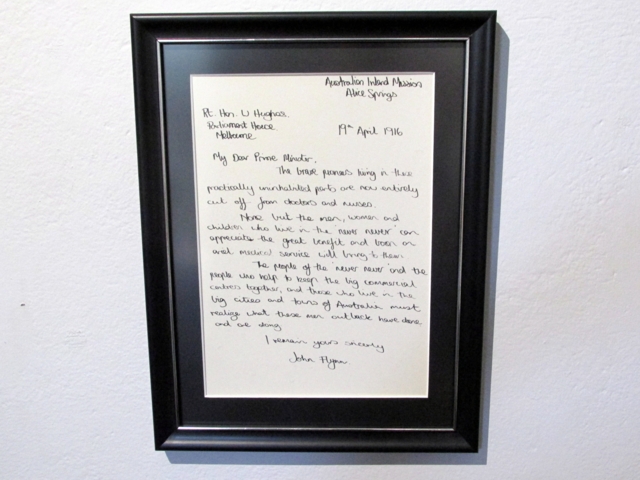 Australian Inland Mission
Alice Springs
Rt. Hon. W Hughes.
Parliament House
Melbourne
19th April 1916
My Dear Prime Minister,
The brave pioneers living in these
practically uninhabited parts are now entirely
cut off from doctors and nurses.
None but the men, women and
children who live in the 'never never' can
appreciate the great benefit and boon an
aerial medical service will bring to them.
The people of the 'never never' and the
people who help to keep the big commercial
centres together, and those who live in the
big cities and towns of Australia must
realize what these men outback have done,
and are doing
I remain yours sincerely
John Flynn